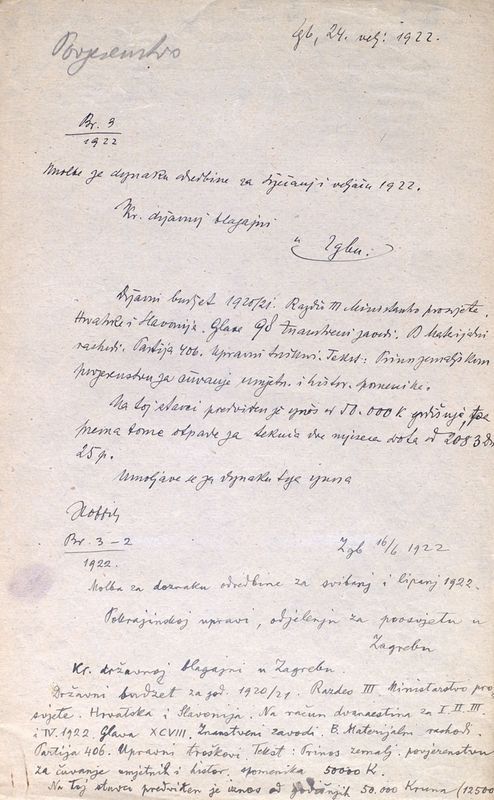 Povjerenstvo
Zgb, 24. velj. 1922.
Br. 3
1922
Molba za doznaku odredbine za siječanj i veljaču 1922.
Kr. državnoj blagajni
u Zgbu.
Državni budžet 1920/21. Razdio III Ministarstvo prosvjete.
Hrvatska i Slavonija. Glava 98 Znanstveni zavodi. B Materijalni
rashodi. Partija 406. Upravni troškovi. Tekst: Prinos zemaljskom
povjerenstvu za čuvanje umjetn. i histor. spomenika.
Na toj stavci predviđen je iznos od 50.000 K godišnje,
prema tome otpada za tekuća dva mjeseca svota od 2083 D
25 p.
Umoljava se za doznaku toga iznosa
Br. 3 – 2
1922.
Zgb 16/6 1922
Molba za doznaku odredbine za svibanj i lipanj 1922.
Pokrajinskoj upravi, odjelenju za prosvjetu u
Zagrebu
Kr. državnoj blagajni u Zagrebu.
Državni budžet za god. 1920/21. Razdeo III Ministarstvo pro
svjete. Hrvatska i Slavonija. Na račun dvanaestina za I II III
i IV. 1922. Glava XCVIII. Znanstveni zavodi. B. Materijalni rashodi.
Partija 406. Upravni troškovi Tekst: Prinos zemalj. povjerenstvu
za čuvanje umjetnih i histor. spomenika 50000 K.
Na toj stavci predviđen je iznos od godišnjih 50.000 Kruna (12500